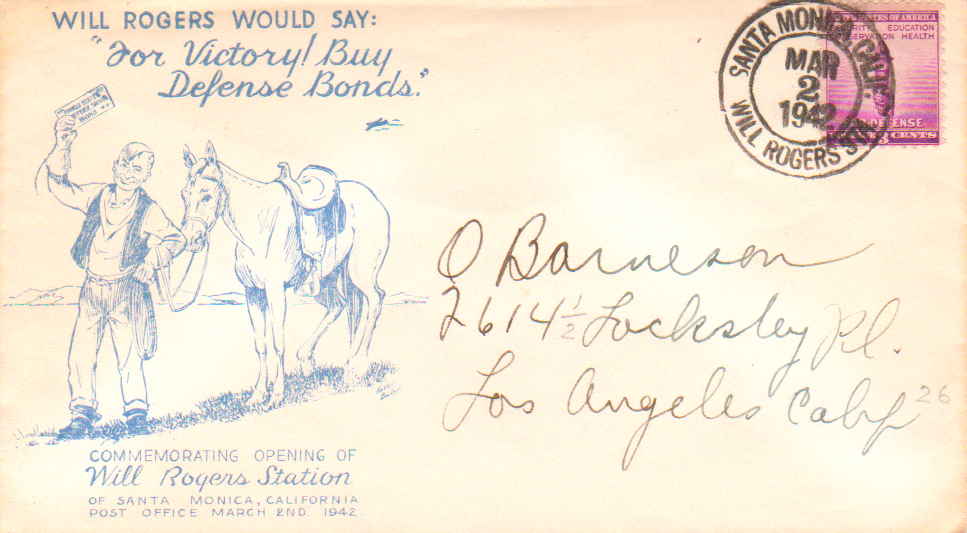 WILL ROGERS WOULD SAY:
"For Victory! Buy
Defense Bonds."
SANTA MONICA, CALIF.
MAR
2
1942
WILL ROGERS STA.
STATES OF AMERICA
EDUCATION
CONSERVATION HEALTH
DEFENSE
3 CENTS
O Barneson
2614 1/2 Locksley Pl.
Los Angeles Calif
26
COMMEMORATING OPENING OF
Will Rogers Station
OF SANTA MONICA, CALIFORNIA
POST OFFICE MARCH 2ND. 1942.